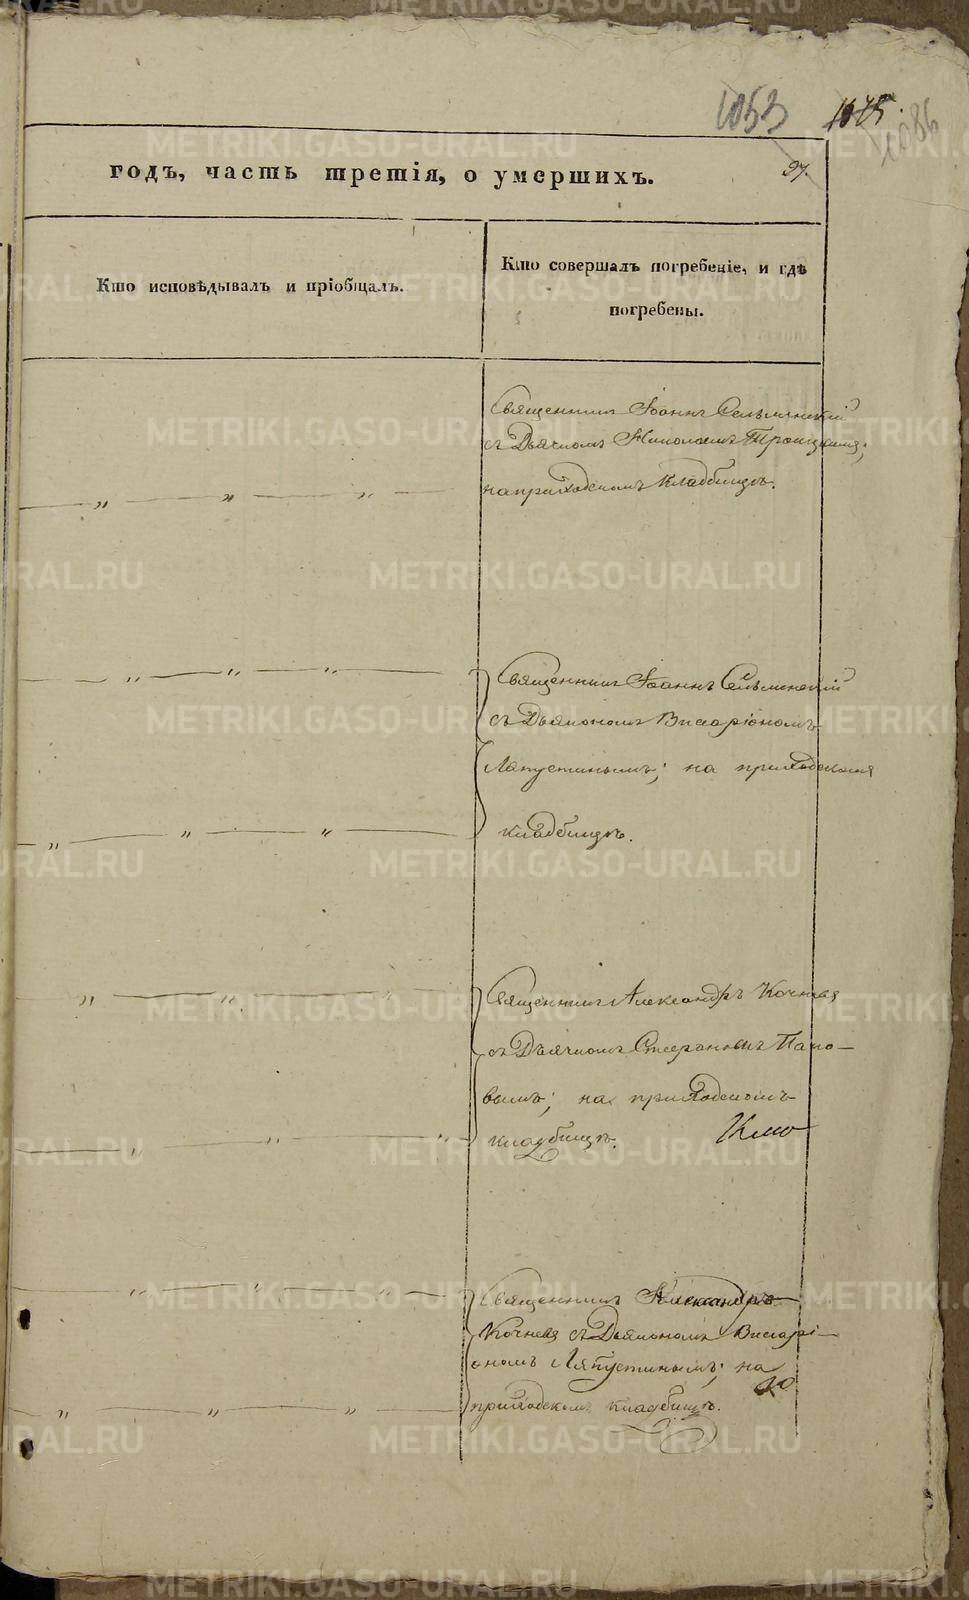 1053 1075. 1086
годъ, часть третія, о умершихъ. 97.
Кто исповѣдывалъ и пріобщалъ.
Кто совершалъ погребеніе, и гдѣ
погребены.
Священникъ Іоаннъ Сельменскій
съ Дьячкомъ Николаемъ Троицкимъ,
на приходскомъ кладбищѣ.
Священникъ Іоаннъ Сельменскій
съ Дьякономъ Висаріономъ
Ляпустинымъ; на приходскомъ
кладбищѣ.
Священникъ Александръ Кочневъ
съ Дьячкомъ Стефаномъ Попо-
вымъ; на приходскомъ
кладбищѣ.
Священникъ Александръ
Кочневъ съ Дьякономъ Висарі-
ономъ Ляпустинымъ; на
приходскомъ кладбищѣ.
METRIKI.GASO-URAL.RU